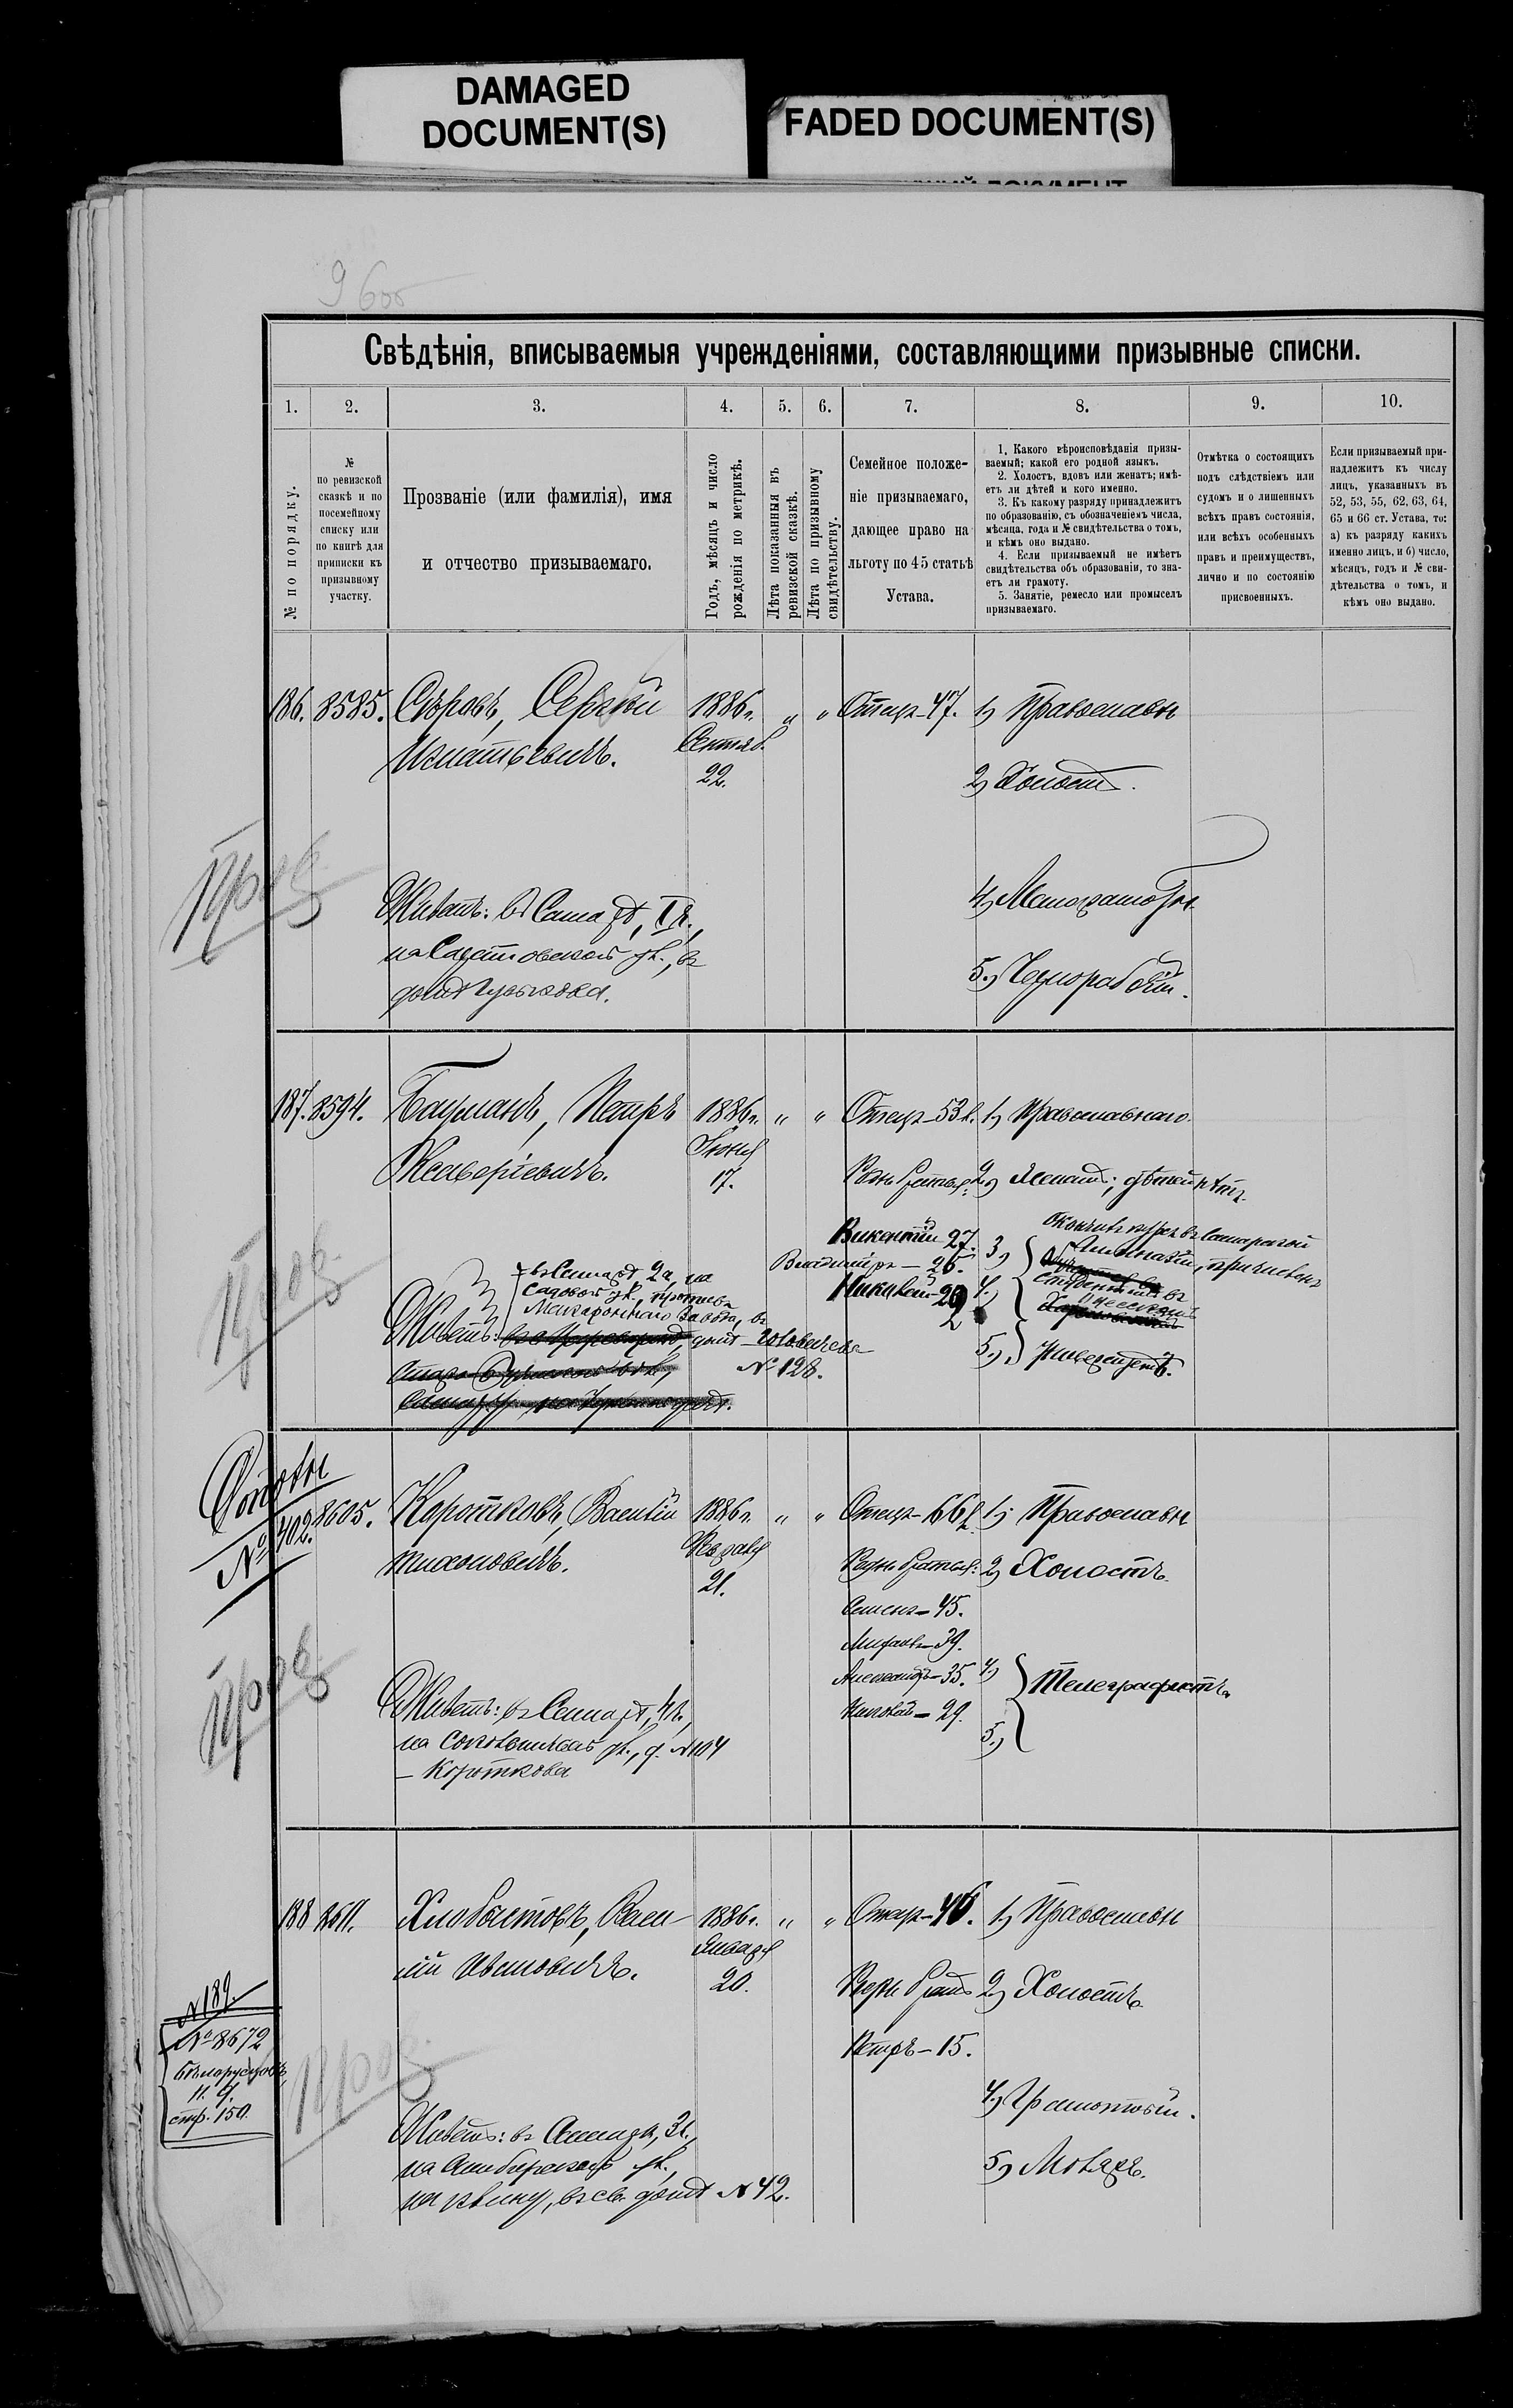 DAMAGED
DOCUMENT(S)
FADED DOCUMENT(S)
Свѣдѣнія, вписываемыя учрежденіями, составляющими призывные списки.
1. 2. 3. 4. 5. 6. 7. 8. 9. 10.
№ по порядку.
№
по ревизской
сказкѣ и по
посемейному
списку или
по книгѣ для
приписки къ
призывному
участку.
Прозваніе (или фамилія), имя
и отчество призываемаго.
Годъ, мѣсяцъ и число
рожденія по метрикѣ.
Лѣта показанныя въ
ревизской сказкѣ.
Лѣта по призывному
свидѣтельству.
Семейное положе-
ніе призываемаго,
дающее право на
льготу по 45 статьѣ
Устава.
1. Какого вѣроисповѣданія призы-
ваемый; какой его родной языкъ.
2. Холостъ, вдовъ или женатъ; имѣ-
етъ ли дѣтей и кого именно.
3. Къ какому разряду принадлежитъ
по образованію, съ обозначеніемъ числа,
мѣсяца, года и № свидѣтельства о томъ,
и кѣмъ оно выдано.
4. Если призываемый не имѣетъ
свидѣтельства объ образованіи, то зна-
етъ ли грамоту.
5. Занятіе, ремесло или промыселъ
призываемаго.
Отмѣтка о состоящихъ
подъ слѣдствіемъ или
судомъ и о лишенныхъ
всѣхъ правъ состоянія,
или всѣхъ особенныхъ
правъ и преимуществъ,
лично и по состоянію
присвоенныхъ.
Если призываемый при-
надлежитъ къ числу
лицъ, указанныхъ въ
52, 53, 55, 62, 63, 64,
65 и 66 ст. Устава, то:
а) къ разряду какихъ
именно лицъ, и б) число,
мѣсяцъ, годъ и № сви-
дѣтельства о томъ, и
кѣмъ оно выдано.
186. 8585. Сергѣй 1886г. " " Отецъ-47. 1) Православн
Игнатьевичъ. Сентяб.
22. 2) Холостъ.
Живетъ: въ Самарѣ, I ч.,
ул., въ
домѣ
4) Малограмотн.
5.) Чернорабочій.
187. 8594. Бауманъ, Петръ 1886г. " " Отецъ-53 л. 1) Православнаго.
Ксаверіевичъ. Іюня
17. Родн. братья: 2) Женатъ; дѣтей нѣтъ
Викентій 27.
Владиміръ - 26.
Николай 20
3) Окончилъ курсъ въ Самарской
Гимназіи,
4)
5.) Университетъ.
Живетъ: въ Самарѣ, 2ч, на
Садовой ул., противъ
Макароннаго завода, въ
домѣ
№ 128.
№ 702. 8605. Коротковъ, Василій 1886г. " " Отецъ-66 л. 1) Православн
Тихоновичъ. Января
21. Родн. братья: 2) Холостъ
Семенъ - 45.
39.
Александръ - 35. 4)
Николай - 29.
5.) Телеграфистъ
Живетъ: въ Самарѣ, 4ч.,
на ул., д. №104
- Короткова
188 8611. Хлобыстовъ, Васи- 1886г. " " Отецъ-46. 1) Православн
лій Ивановичъ. Января
20. Родн. братъ 2) Холостъ
Петръ - 15.
4.) Грамотный.
5) Маляръ.
Живетъ: въ Самарѣ, 3ч.,
на Симбирской ул.,
въ св. домѣ № 42.
№ 189.
№ 8672
стр. 150.